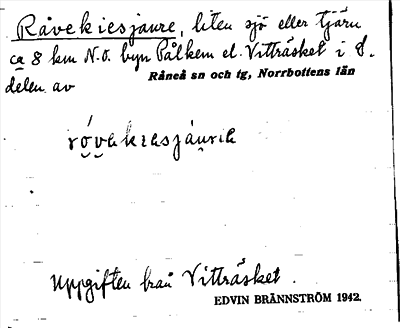 Råvekiesjaure, liten sjö eller tjärn
ca 8 km N.O. byn Pålkem el. Vitträsket i S.
delen av Råneå sn och tg, Norrbottens län
róvakiesjáuria
Uppgiften från Vitträsket.
EDVIN BRÄNNSTRÖM 1942.